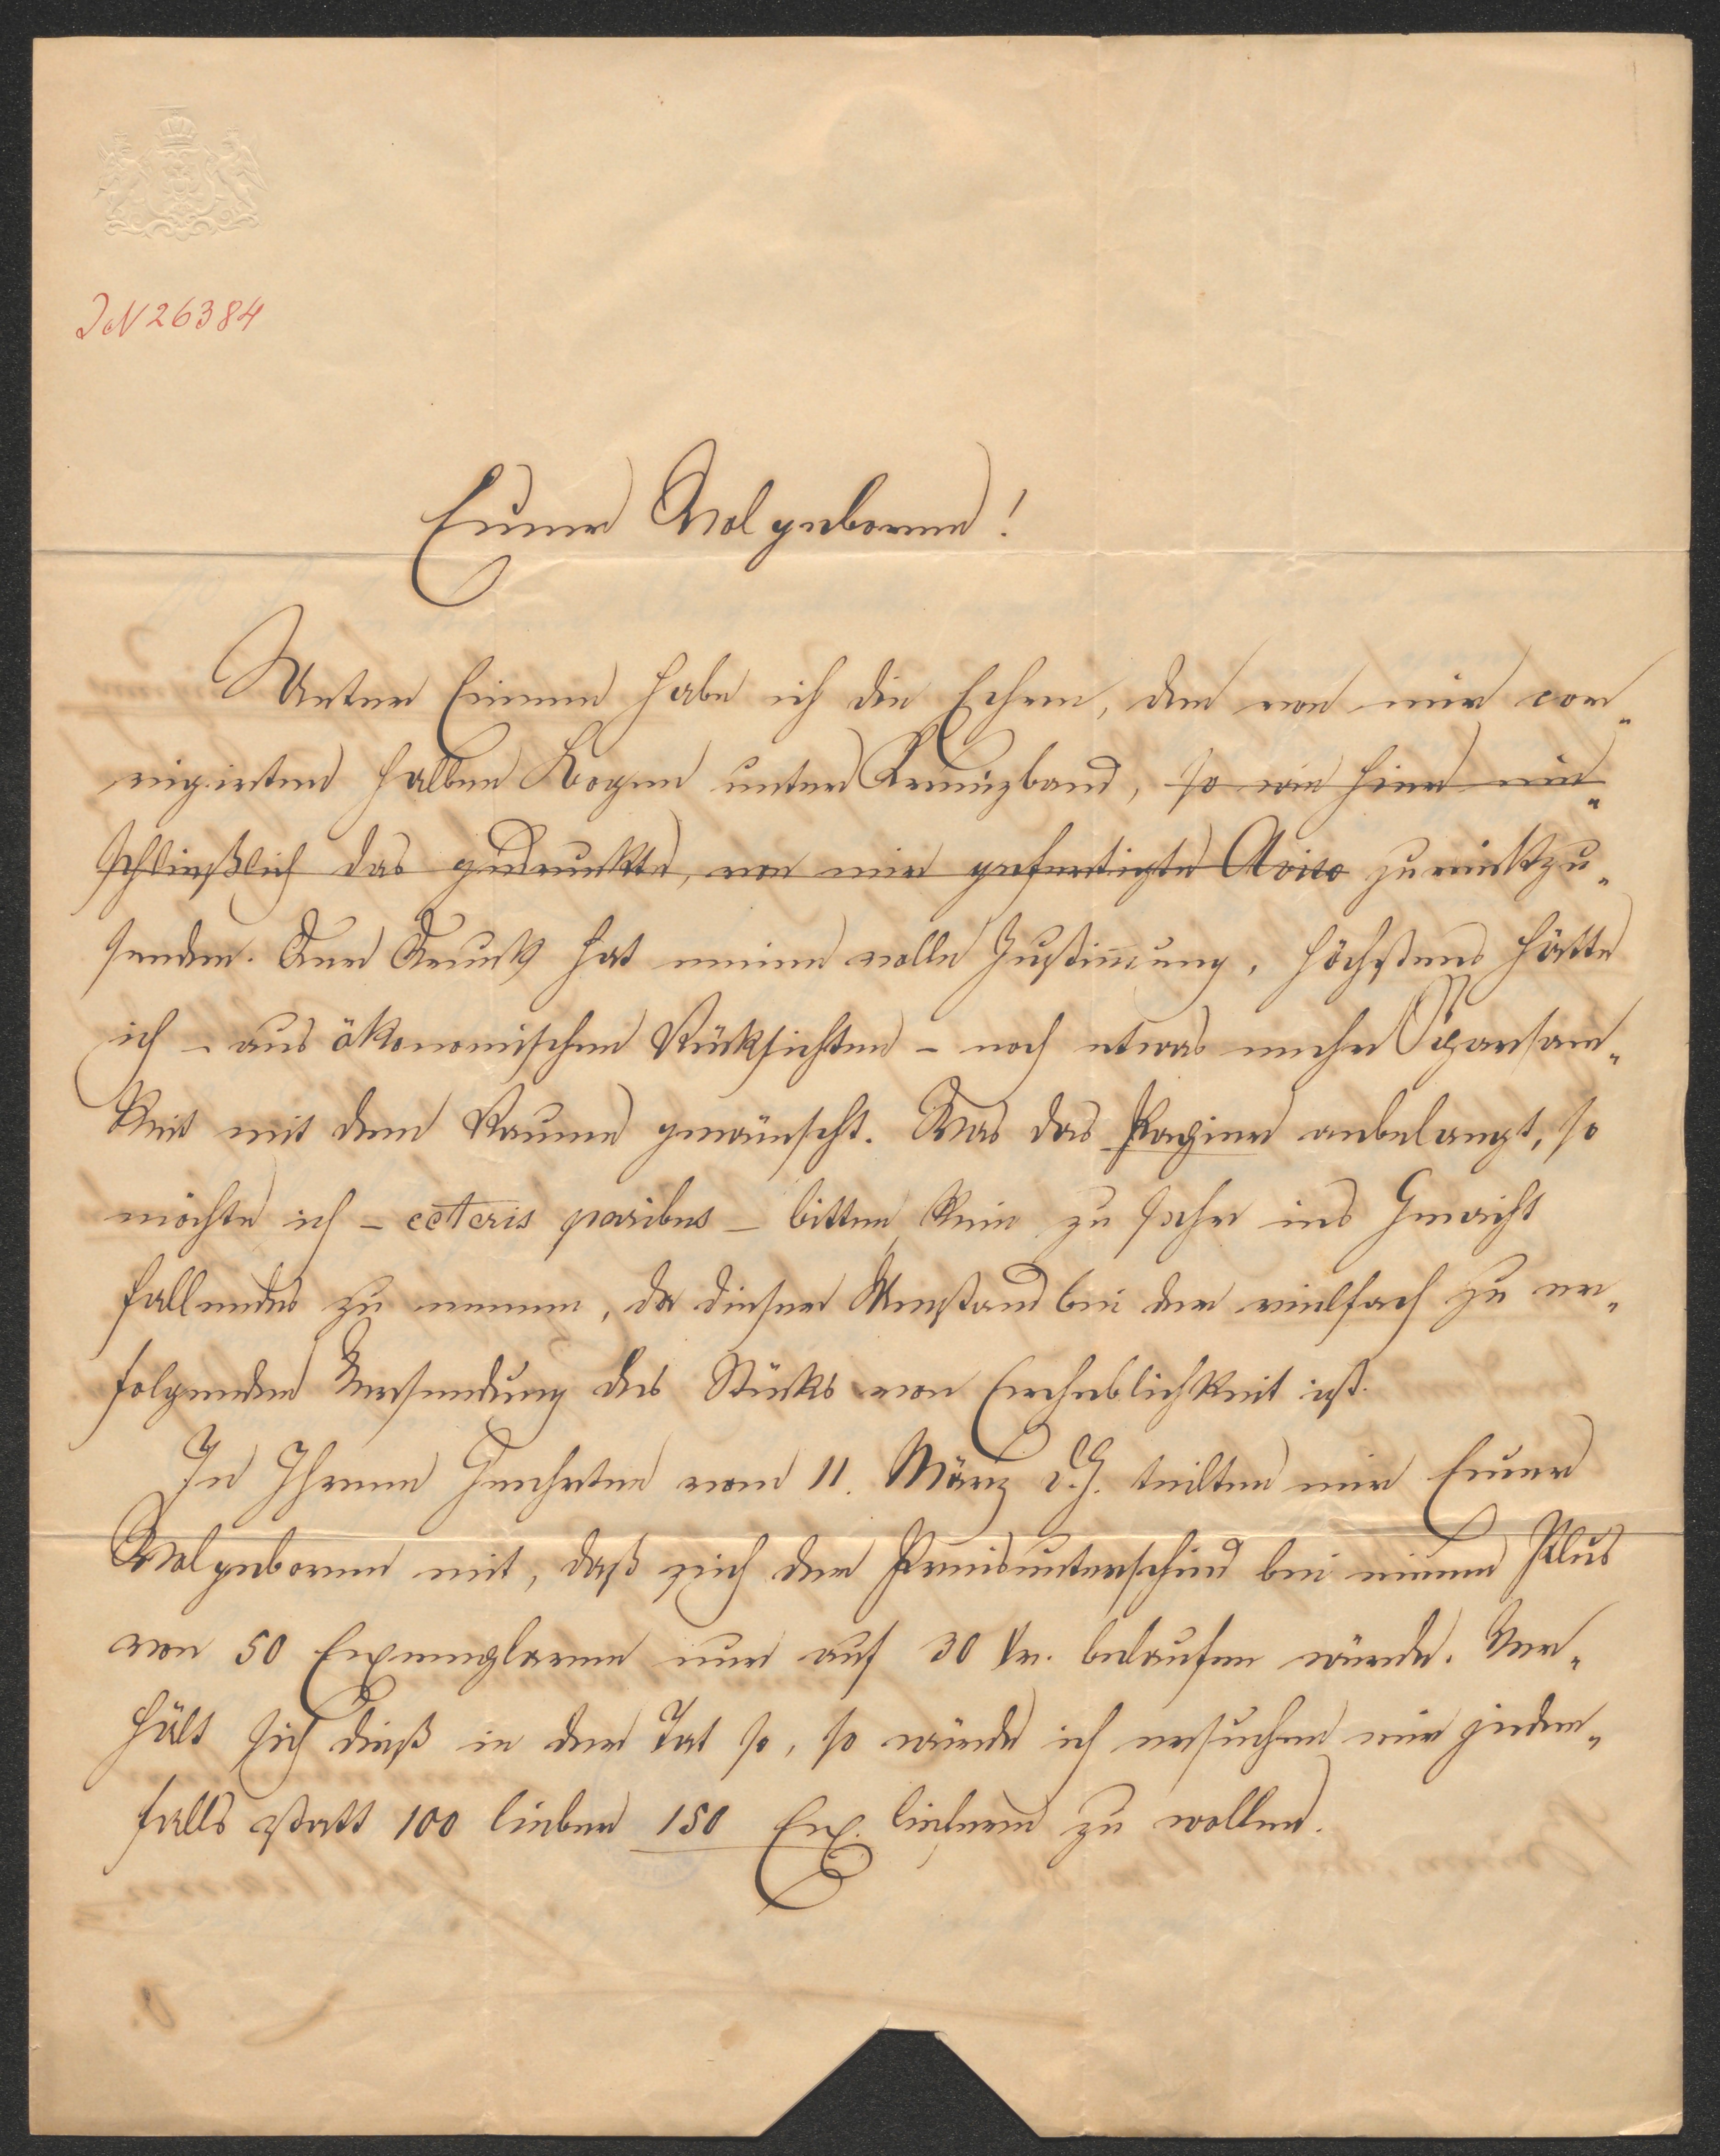 IN 26384
Euer Wolgeboren!
Unter Einem habe ich die Ehre, den von mir cor„
rigirten halben Bogen unter Kreuzband, so wie hier ein„
schließlich das gedruckte, von mir gefertigte Aviso zurückzu„
senden. Der Druck hat meine volle Zustim̄ung, höchstens hätte
ich – aus ökonomischen Rücksichten – noch etwas mehr Sparsam„
keit mit dem Raume gewünscht. Was das Papier anbelangt, so
möchte ich – ceteris paribus – bitten, kein zu sehr ins Gewicht
fallendes zu nemen, da dieser Umstand bei der vielfach zu er„
folgenden Versendung des Stücks von Erheblichkeit ist.
In Ihrem Geehrten vom 11. März d. J. teilten mir Euer
Wolgeboren mit, daß sich der Preisunterschied bei einem Plus
von 50 Exemplaren nur auf 30 kr. belaufen würde. Ver„
hält sich dieß in der Tat so, so würde ich ersuchen mir jeden„
falls statt 100 lieber 150 Ex. liefern zu wollen.